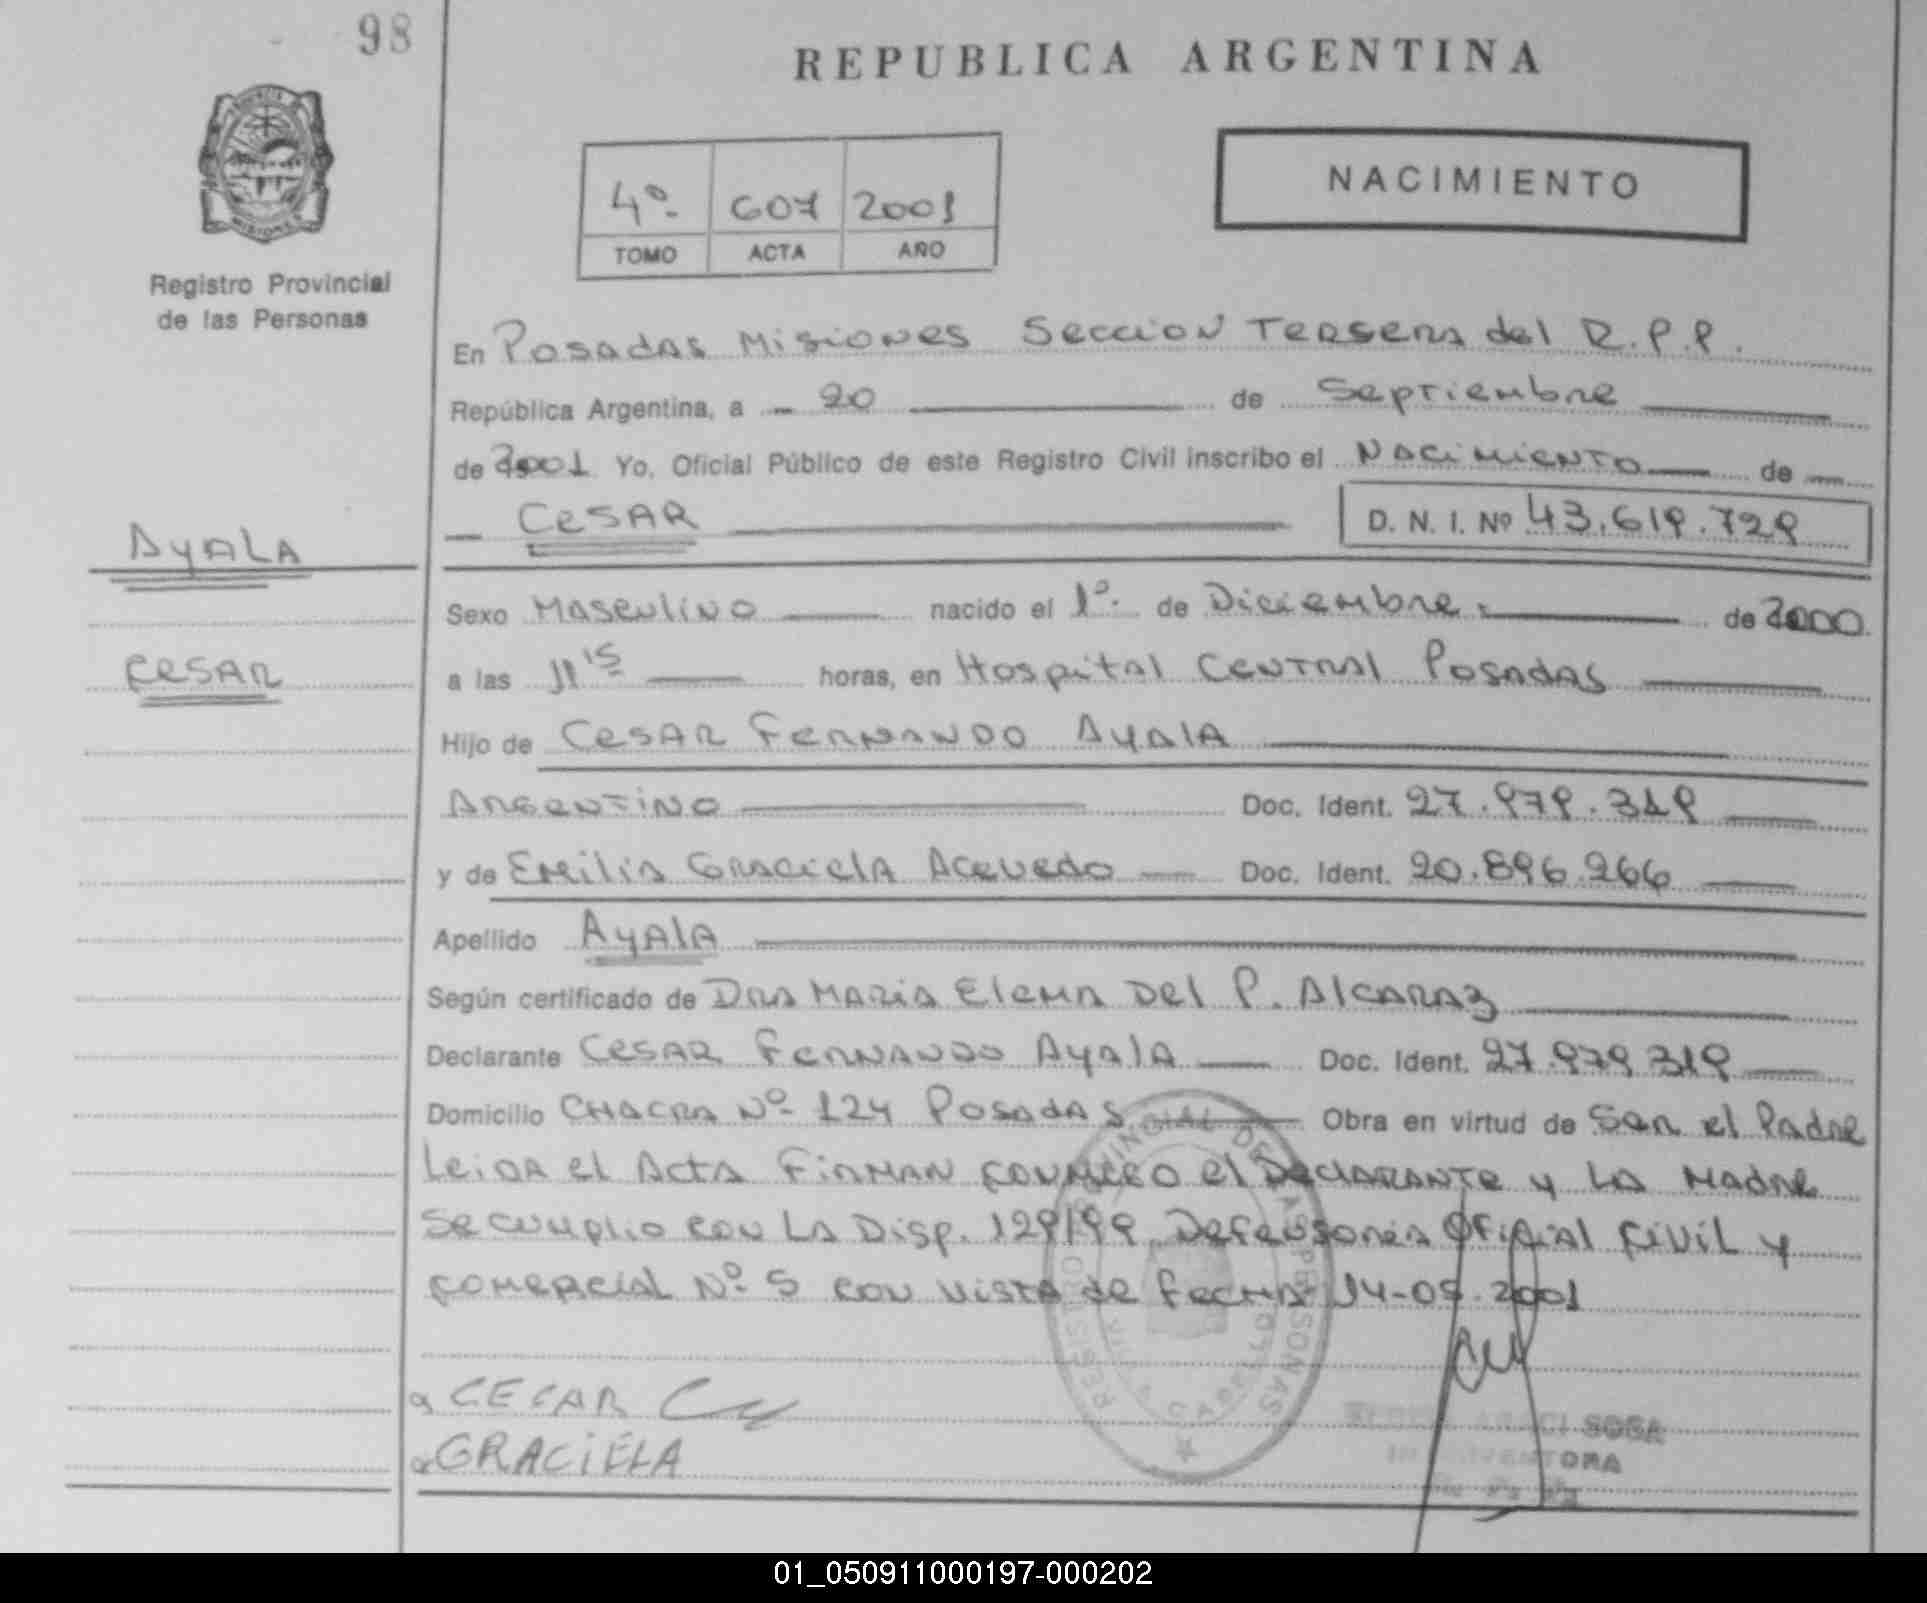 98
REPUBLICA ARGENTINA
4º. 607 2001
TOMO ACTA AÑO
NACIMIENTO
Registro Provincial
de las Personas
En Posadas Misiones Seccion Tersera del R.P.P.
República Argentina, a 20 de Septiembre
de 2001 Yo, Oficial Público de este Registro Civil inscribo el Nacimiento de
CeSAR D. N. I. Nº 43.619.729
AyALA
Sexo Masculino nacido el 1º. de Diciembre de 2000
CeSAR
a las 11 15 horas, en Hospital Central Posadas
Hijo de CeSAR Fernando Ayala
Argentino Doc. Ident. 27.979.319
y de Emilia Graciela Acevedo Doc. Ident. 20.896.266
Apellido AyAlA
Según certificado de Dra Maria Elena Del P. Alcaraz
Declarante CeSAR Fernando Ayala Doc. Ident. 27.979.319
Domicilio CHACRA Nº 124 Posadas Obra en virtud de Ser el Padre
Leida el Acta Firman conmigo el Declarante y La Madre
Se cumplio con La Disp. 129/99 Defensoria Oficial Civil y
Comercial Nº 5 con vista de Fecha 14-09-2001
REGISTRO PROVINCIAL DE LAS PERSONAS
CECAR
GRACiELA
SOSA
INTERVENTORA
01_050911000197-000202